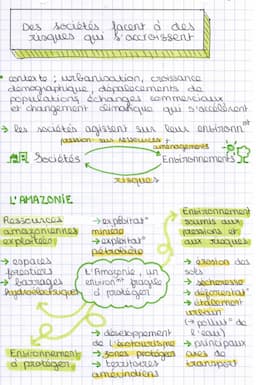 Des sociétés facent à des
risques qui s'accroissent
• contexte ; urbanisation, croissance
démographique, déplacements de
populations, échanges commerciaux
et changement climatique qui s'accélèrent
→ les sociétés agissent sur leur environnmt
pression sur ressources +
aménagements
Sociétés
Environnements
risques
L'AMAZONIE
Ressources
amazoniennes
exploitées
→ espaces
forestiers
→ barrages
hydroélectriques
→ exploitat°
minière
→ exploitat°
pétrolière
Environnement
soumis aux
pressions et
aux risques
→ érosion des
sols
→ sécheresse
→ déforestat°
→ étalement
urbain
(→ pollut° de
l'eau)
→ principaux
axes de
transport
L'Amazonie, un
environmt fragile
à protéger
→ développement
de l'écotourisme
→ zones protégées
→ territoires
amérindiens
Environnement
à protéger